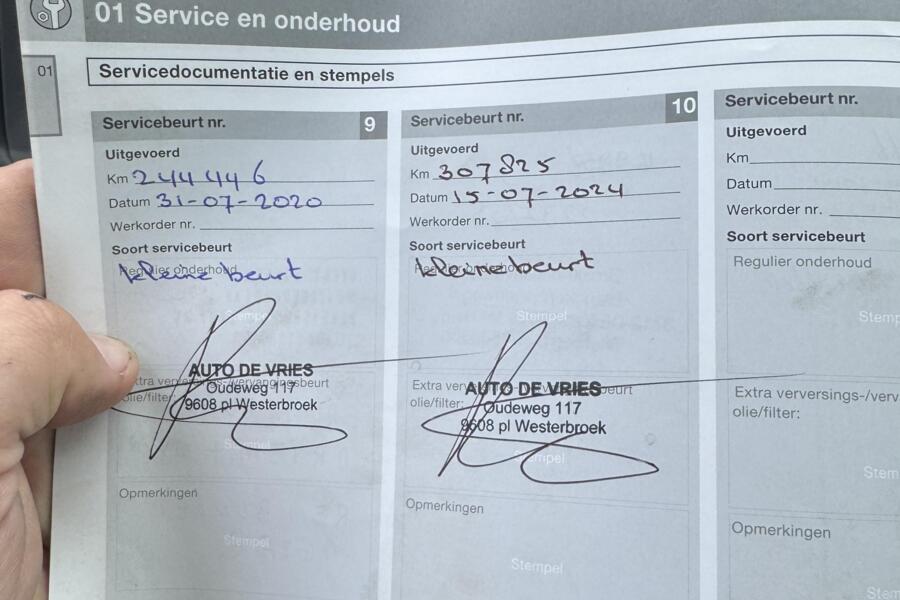 01 Service en onderhoud
01
Servicedocumentatie en stempels
Servicebeurt nr. 9
Uitgevoerd
Km 244446
Datum 31-07-2020
Werkorder nr.
Soort servicebeurt
Regulier onderhoud
kleine beurt
Stempel
AUTO DE VRIES
Oudeweg 117
9608 pl Westerbroek
Extra verversings-/vervangingsbeurt
olie/filter:
Stempel
Opmerkingen
Stempel
Servicebeurt nr. 10
Uitgevoerd
Km 307825
Datum 15-07-2024
Werkorder nr.
Soort servicebeurt
kleine beurt
Stempel
Extra beurt
olie/filter:
AUTO DE VRIES
Oudeweg 117
9608 pl Westerbroek
Stempel
Opmerkingen
Stempel
Servicebeurt nr.
Uitgevoerd
Km
Datum
Werkorder nr.
Soort servicebeurt
Regulier onderhoud
Stemp
Extra verversings-/verv
olie/filter:
Stem
Opmerkingen
Stem